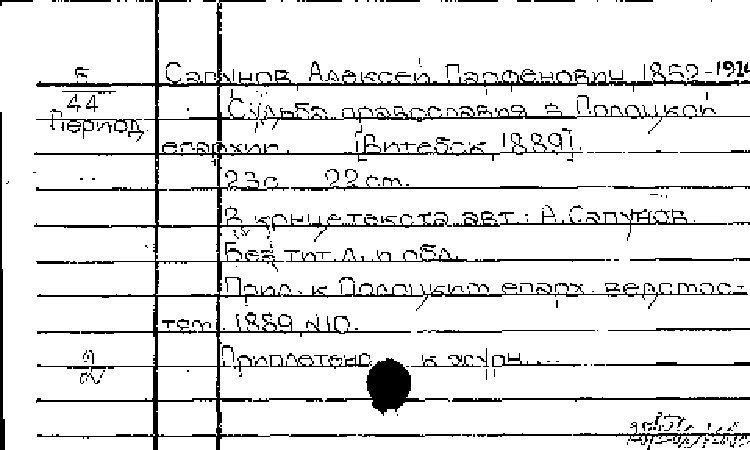 Б Сапунов, Алексей Парфенович, 1852-
44 Судьба православия в Полоцкой
Период епархии. [Витебск, 1889].
23с. 22 cm.
В конце текста авт.: А. Сапунов.
Без тит. л. и обл.
Прил. к Полоцким епарх. ведомос-
тям. 1889, N10.
2 Приплетено к журн....